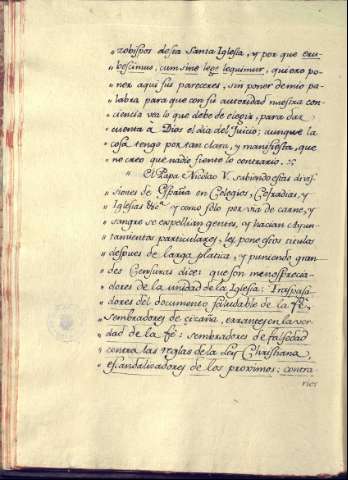 "zobispos desta Santa Iglesia, y por que eru-
"bescimus, cum sine lege loquimur, quiero po-
"ner aqui sus pareceres, sin poner de mio pa-
"labra para que con su autoridad nuestra con-
"ciencia vea lo que debe de elegir, para dar
"cuenta à Dios el dia del Juicio; aunque la
"cosa tengo por tan clara, y manifiesta, que
"no creo que nadie siente lo contrario.
" El Papa Nicolao V. sabiendo estas divi-
"siones de España en Colegios, Cofradias, y
"Iglesias &cª y como solo por via de carne, y
"sangre se expellian gentes, y hacian Ayun-
"tamientos particulares, les pone esos titulos
"despues de larga platica, y puniendo gran-
"des Censuras dice: que son menosprecia-
"dores de la unidad de la Iglesia: Traspasa-
"dores del documento saludable de la fè,
"sembradores de cizaña, errantes en la ver-
"dad de la fè: sembradores de falsedad
"contra las reglas de la Ley Christiana,
"escandalizadores de los proximos: contra-
rios